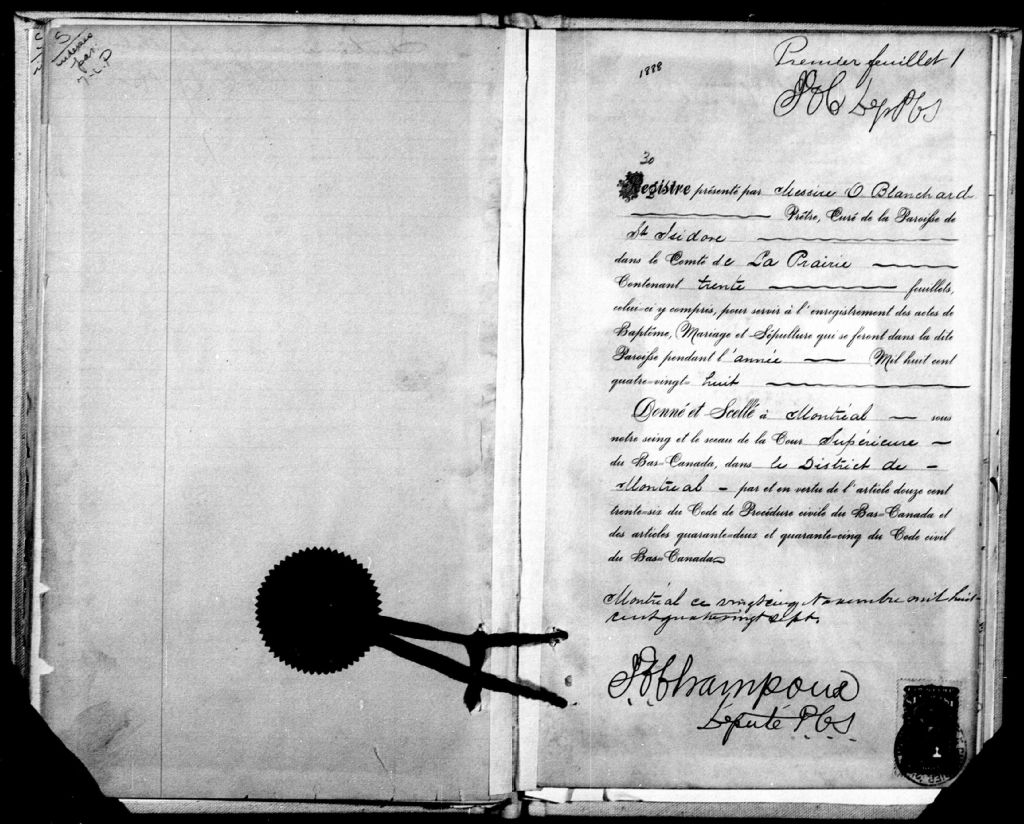 5
Premier feuillet 1
1888
JBC Dep PCS
30
Registre présenté par Messire O Blanchard
Prêtre, Curé de la Paroisse de
St Isidore
dans le Comté de La Prairie
Contenant trente feuillets,
celui-ci y compris, pour servir à l'enregistrement des actes de
Baptême, Mariage et Sépulture qui se feront dans la dite
Paroisse pendant l'année Mil huit cent
quatre-vingt-huit
Donné et Scellé à Montréal sous
notre seing et le sceau de la Cour Supérieure
du Bas-Canada, dans le District de
Montréal par et en vertu de l'article douze cent
trente-six du Code de Procédure civile du Bas-Canada et
des articles quarante-deux et quarante-cinq du Code civil
du Bas-Canada
Montréal ce vingt cinq Novembre mil huit
cent quatre vingt sept.
JB Champoux
Député P.C.S.
1